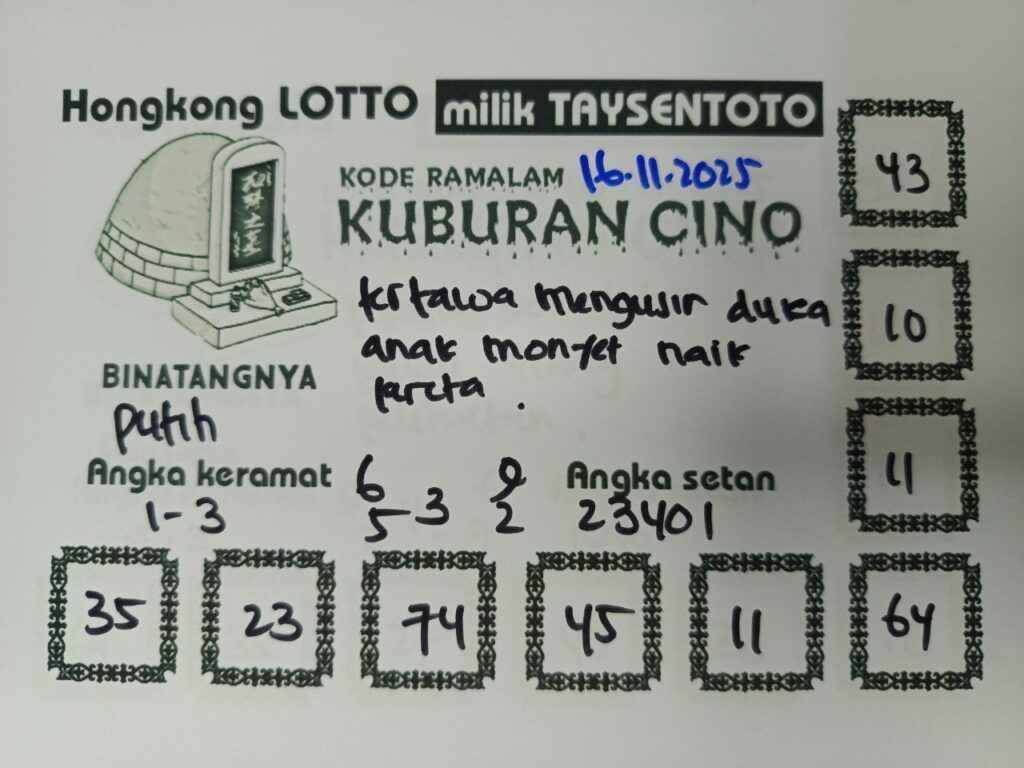 Hongkong LOTTO milik TAYSENTOTO
KODE RAMALAM 16.11.2025
KUBURAN CINO
tertawa mengusir duka
anak monyet naik
kreta.
BINATANGNYA
putih
Angka keramat
1-3
6
5-3
9
2
Angka setan
23401
43
10
11
35 23 74 45 11 64